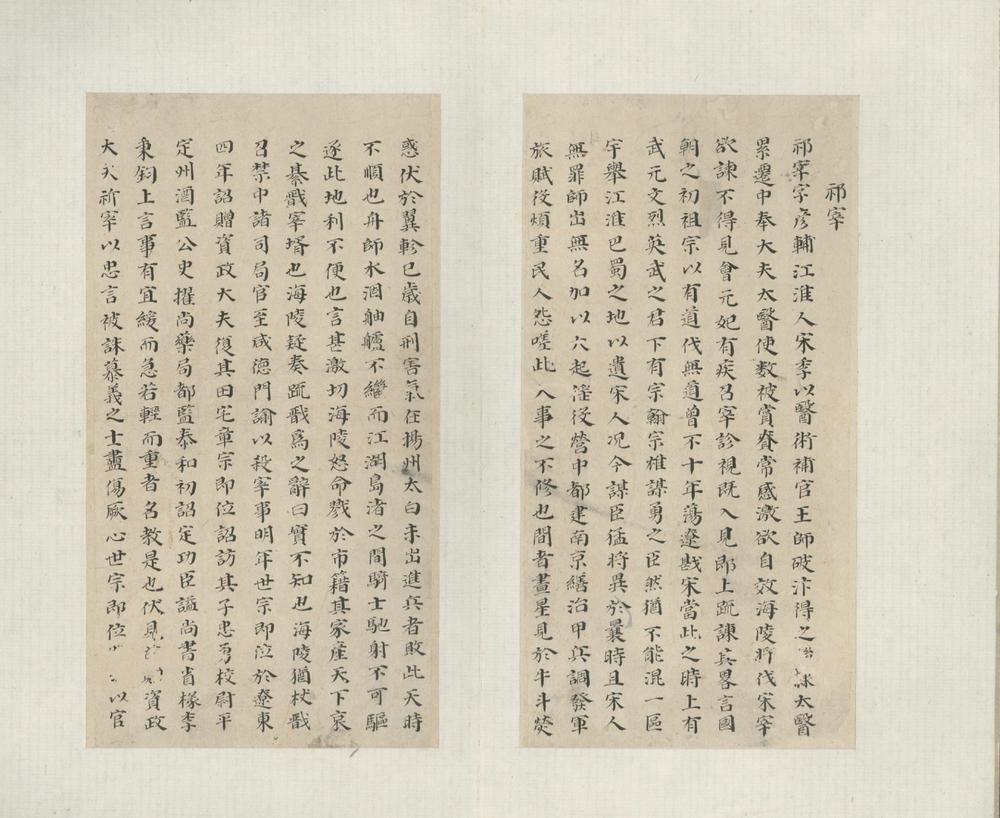 祁宰
祁宰字彥輔江淮人宋季以醫術補官王師破汴得之 太醫
累遷中奉大夫太醫使数被賞賚常感激欲自效海陵將伐宋宰
欲諫不得見會元妃有疾召宰診視既入見即上疏諫其畧言國
朝之初祖宗以有道伐無道曾不十年蕩遼戡宋當此之時上有
武元文烈英武之君下有宗翰宗雄謀勇之臣然猶不能混一區
宇舉江淮巴蜀之地以遺宋人况今謀臣猛將異於曩時且宋人
無罪師出無名加以大起徭役營中都建南京繕治甲兵調發軍
旅賦役煩重民人怨嗟此人事之不修也間者晝星見於牛斗熒
惑伏於翼軫巳歲自刑害氣在揚州太白未出進兵者敗此天時
不順也舟師水涸舳艫不繼而江湖島渚之間騎士馳射不可驅
逐此地利不便也言甚激切海陵怒命戮於市籍其家產天下哀
之綦戩宰壻也海陵疑奏疏戩爲之辭曰實不知也海陵猶杖戩
召禁中諸司局官至咸德門諭以殺宰事明年世宗即位於遼東
四年詔贈資政大夫復其田宅章宗即位詔訪其子忠勇校尉平
定州酒監公史擢尚藥局都監泰和初詔定功臣謚尚書省椽李
秉鈞上言事有宜緩而急若輕而重者名教是也伏見 資政
大夫祈宰以忠言被誅慕義之士盡傷厥心世宗即位 以官